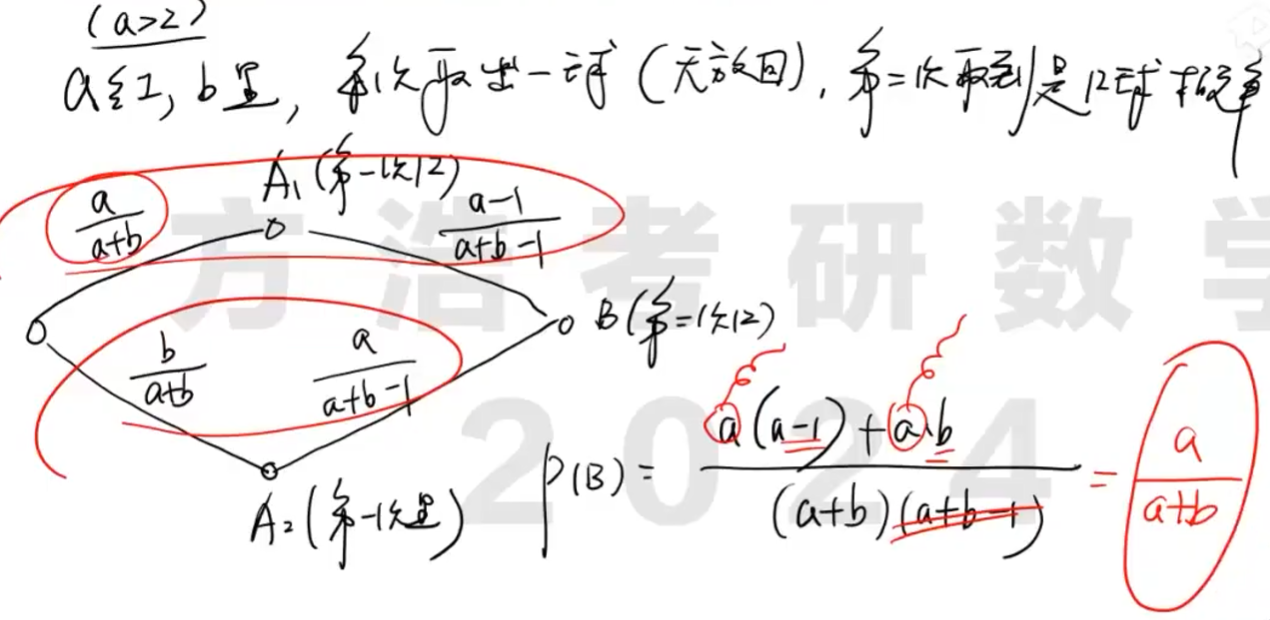 (a>2)
a红, b黑, 每次取出一球 (无放回), 第二次取到是红球概率
A₁ (第一次红)
a/(a+b)
(a-1)/(a+b-1)
B (第二次红)
b/(a+b)
a/(a+b-1)
A₂ (第一次黑)
P(B) = (a(a-1)+a·b)/((a+b)(a+b-1)) = a/(a+b)
方浩考研数学
2024